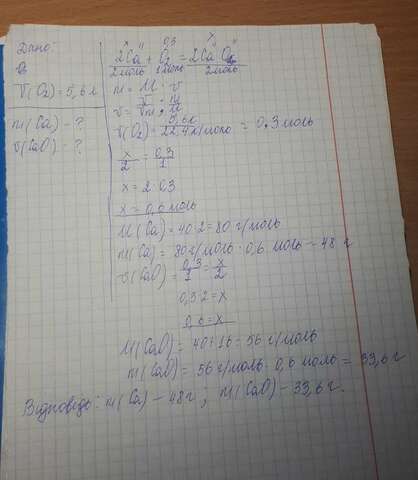 Дано:
V(O₂)=5,6л
m(Ca) - ?
v(CaO) - ?
x 0,3 x
2Ca + O₂ = 2CaO
2моль 1моль 2моль
m = M · v
v = V/Vm
v(O₂) = 5,6л/22,4л/моль = 0.3 моль
x/2 = 0,3/1
x = 2 · 0,3
x = 0,6 моль
M(Ca) = 40·2 = 80 г/моль
m(Ca) = 80г/моль · 0,6 моль - 48 г
v(CaO) = 0,3/1 = x/2
0,3·2 = x
0,6 = x
M(CaO) = 40+16 = 56 г/моль
m(CaO) = 56 г/моль · 0,6 моль = 33,6 г
Відповідь: m(Ca) - 48г ; m(CaO) - 33,6 г.